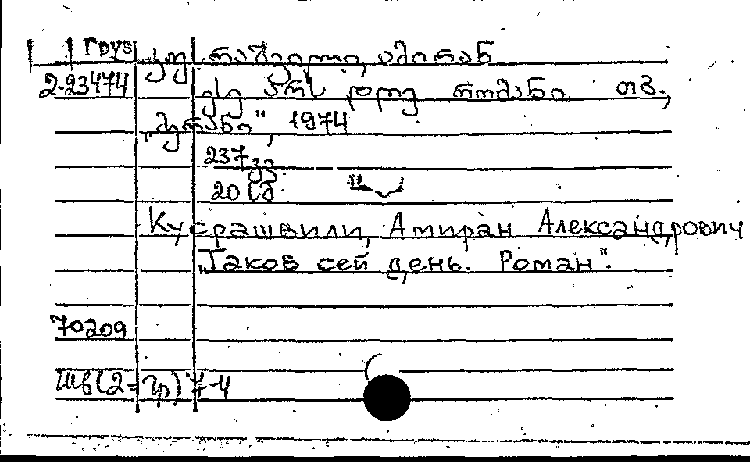 Груз
კუსრაშვილი, ამირან
2-23474 ესე არს დღე რომანი თბ.,
„მერანი“, 1974
237 გვ.
20 სმ.
Кусрашвили, Амиран Александрович
„Таков сей день. Роман“.
70209
Шв(2=Гр)7-4